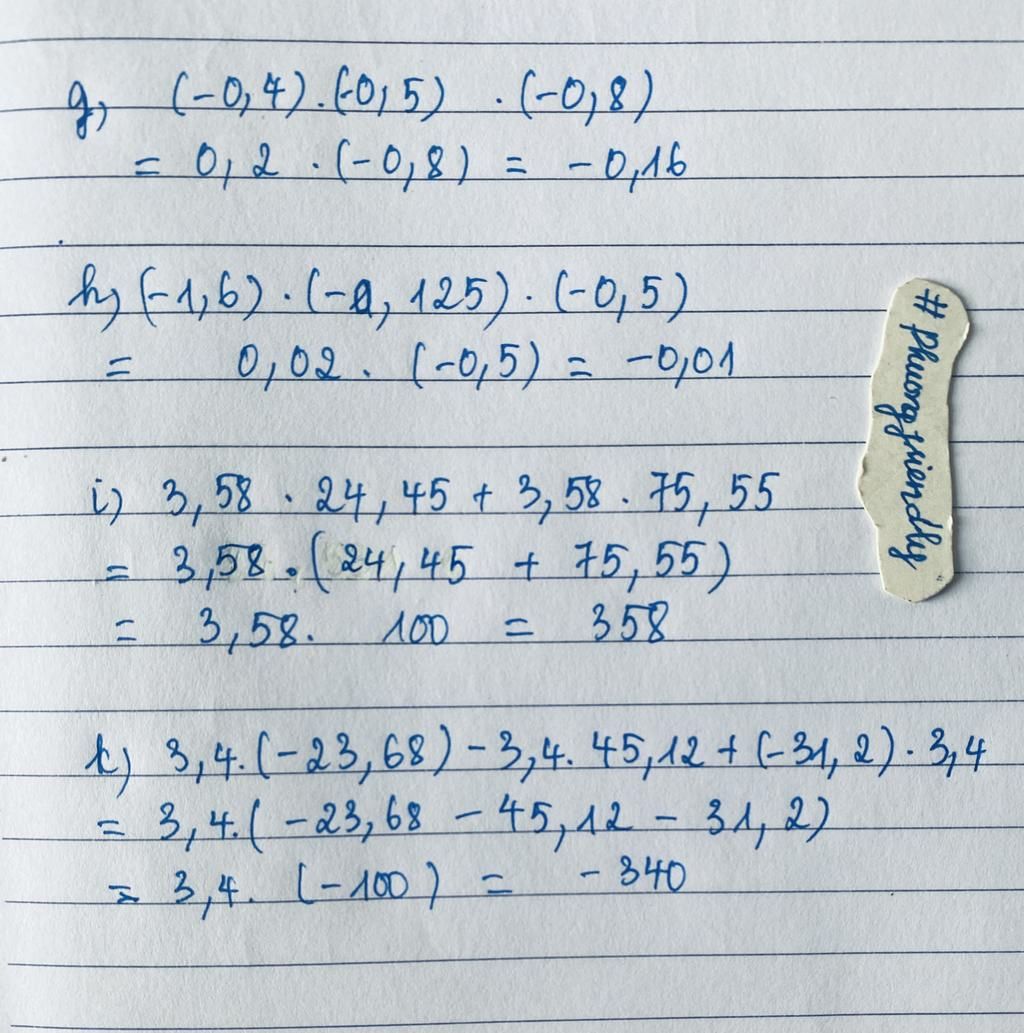 g, (-0,4).(-0,5) .(-0,8)
= 0,2 .(-0,8) = -0,16
h, (-1,6).(-0,125).(-0,5)
= 0,02. (-0,5) = -0,01
i) 3,58 . 24,45 + 3,58 . 75,55
= 3,58 .(24,45 + 75,55)
= 3,58. 100 = 358
k) 3,4.(-23,68) - 3,4. 45,12 + (-31,2).3,4
= 3,4.(-23,68 - 45,12 - 31,2)
= 3,4. (-100) = -340
# phuongfriendly